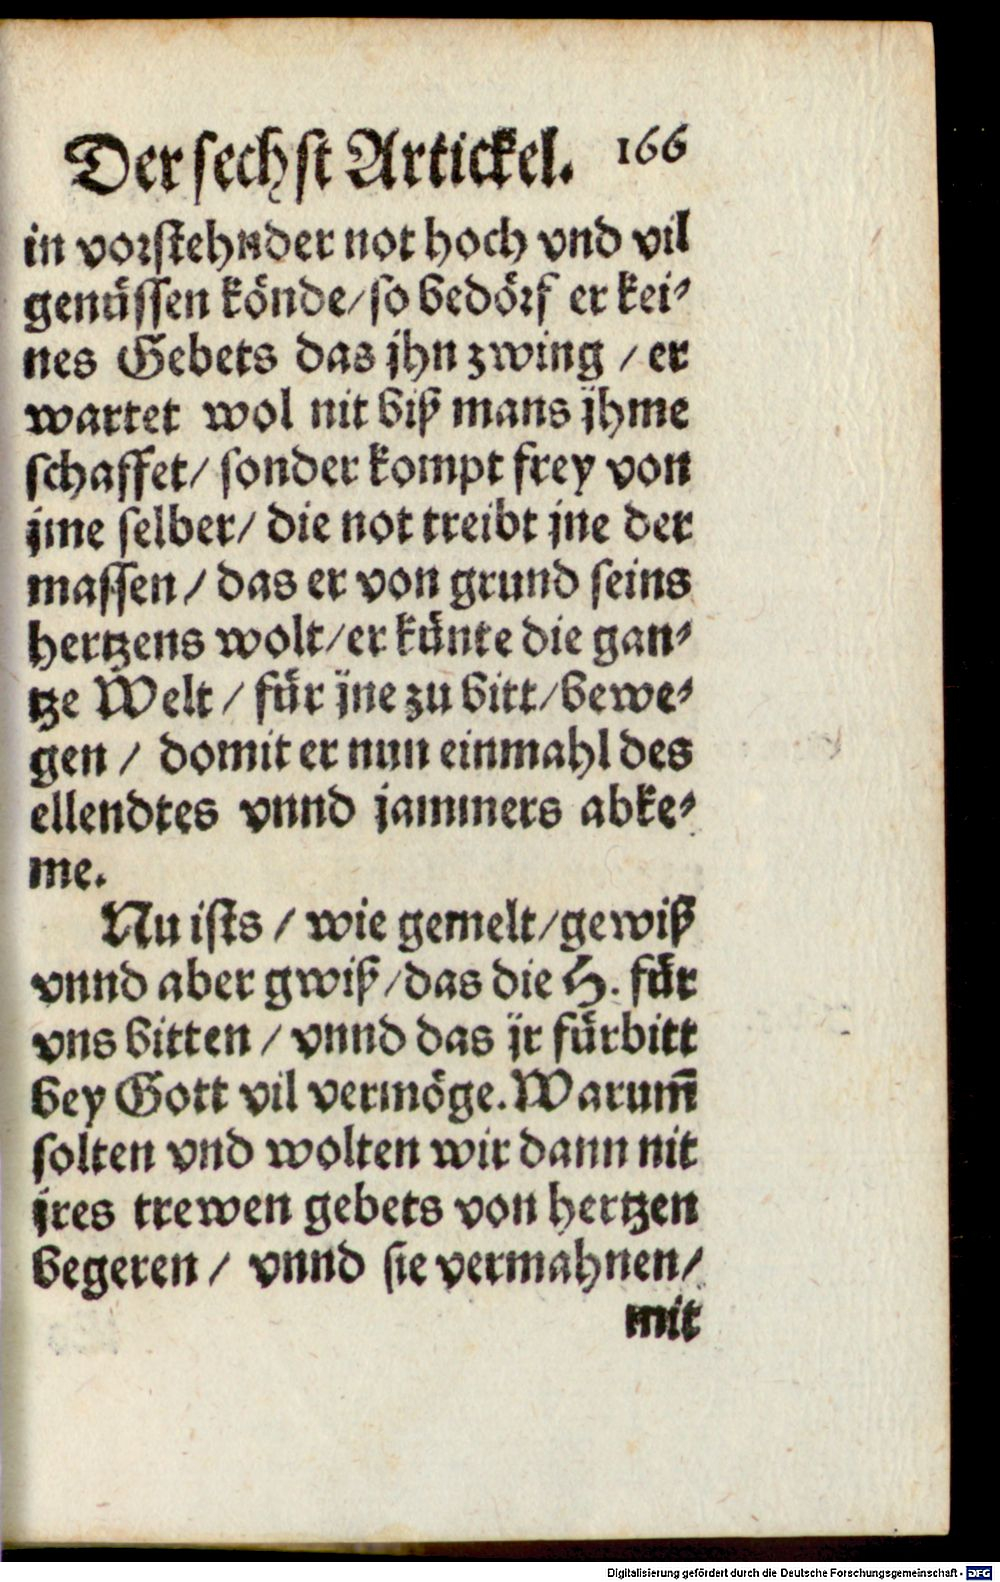 Der sechst Artickel. 166
in vorstehnder not hoch vnd vil
genüssen könde/so bedörf er kei⸗
nes Gebets das jhn zwing / er
wartet wol nit biß mans jhme
schaffet/ sonder kompt frey von
jme selber/ die not treibt jne der
massen / das er von grund seins
hertzens wolt/er künte die gan⸗
tze Welt / für jne zu bitt/bewe⸗
gen / domit er nun einmahl des
ellendtes vnnd jammers abke⸗
me.
Nu ists / wie gemelt/gewiß
vnnd aber gwiß/das die H. für
vns bitten / vnnd das jr fürbitt
bey Gott vil vermöge. Warum̄
solten vnd wolten wir dann nit
jres trewen gebets von hertzen
begeren / vnnd sie vermahnen/
mit
Digitalisierung gefördert durch die Deutsche Forschungsgemeinschaft - DFG